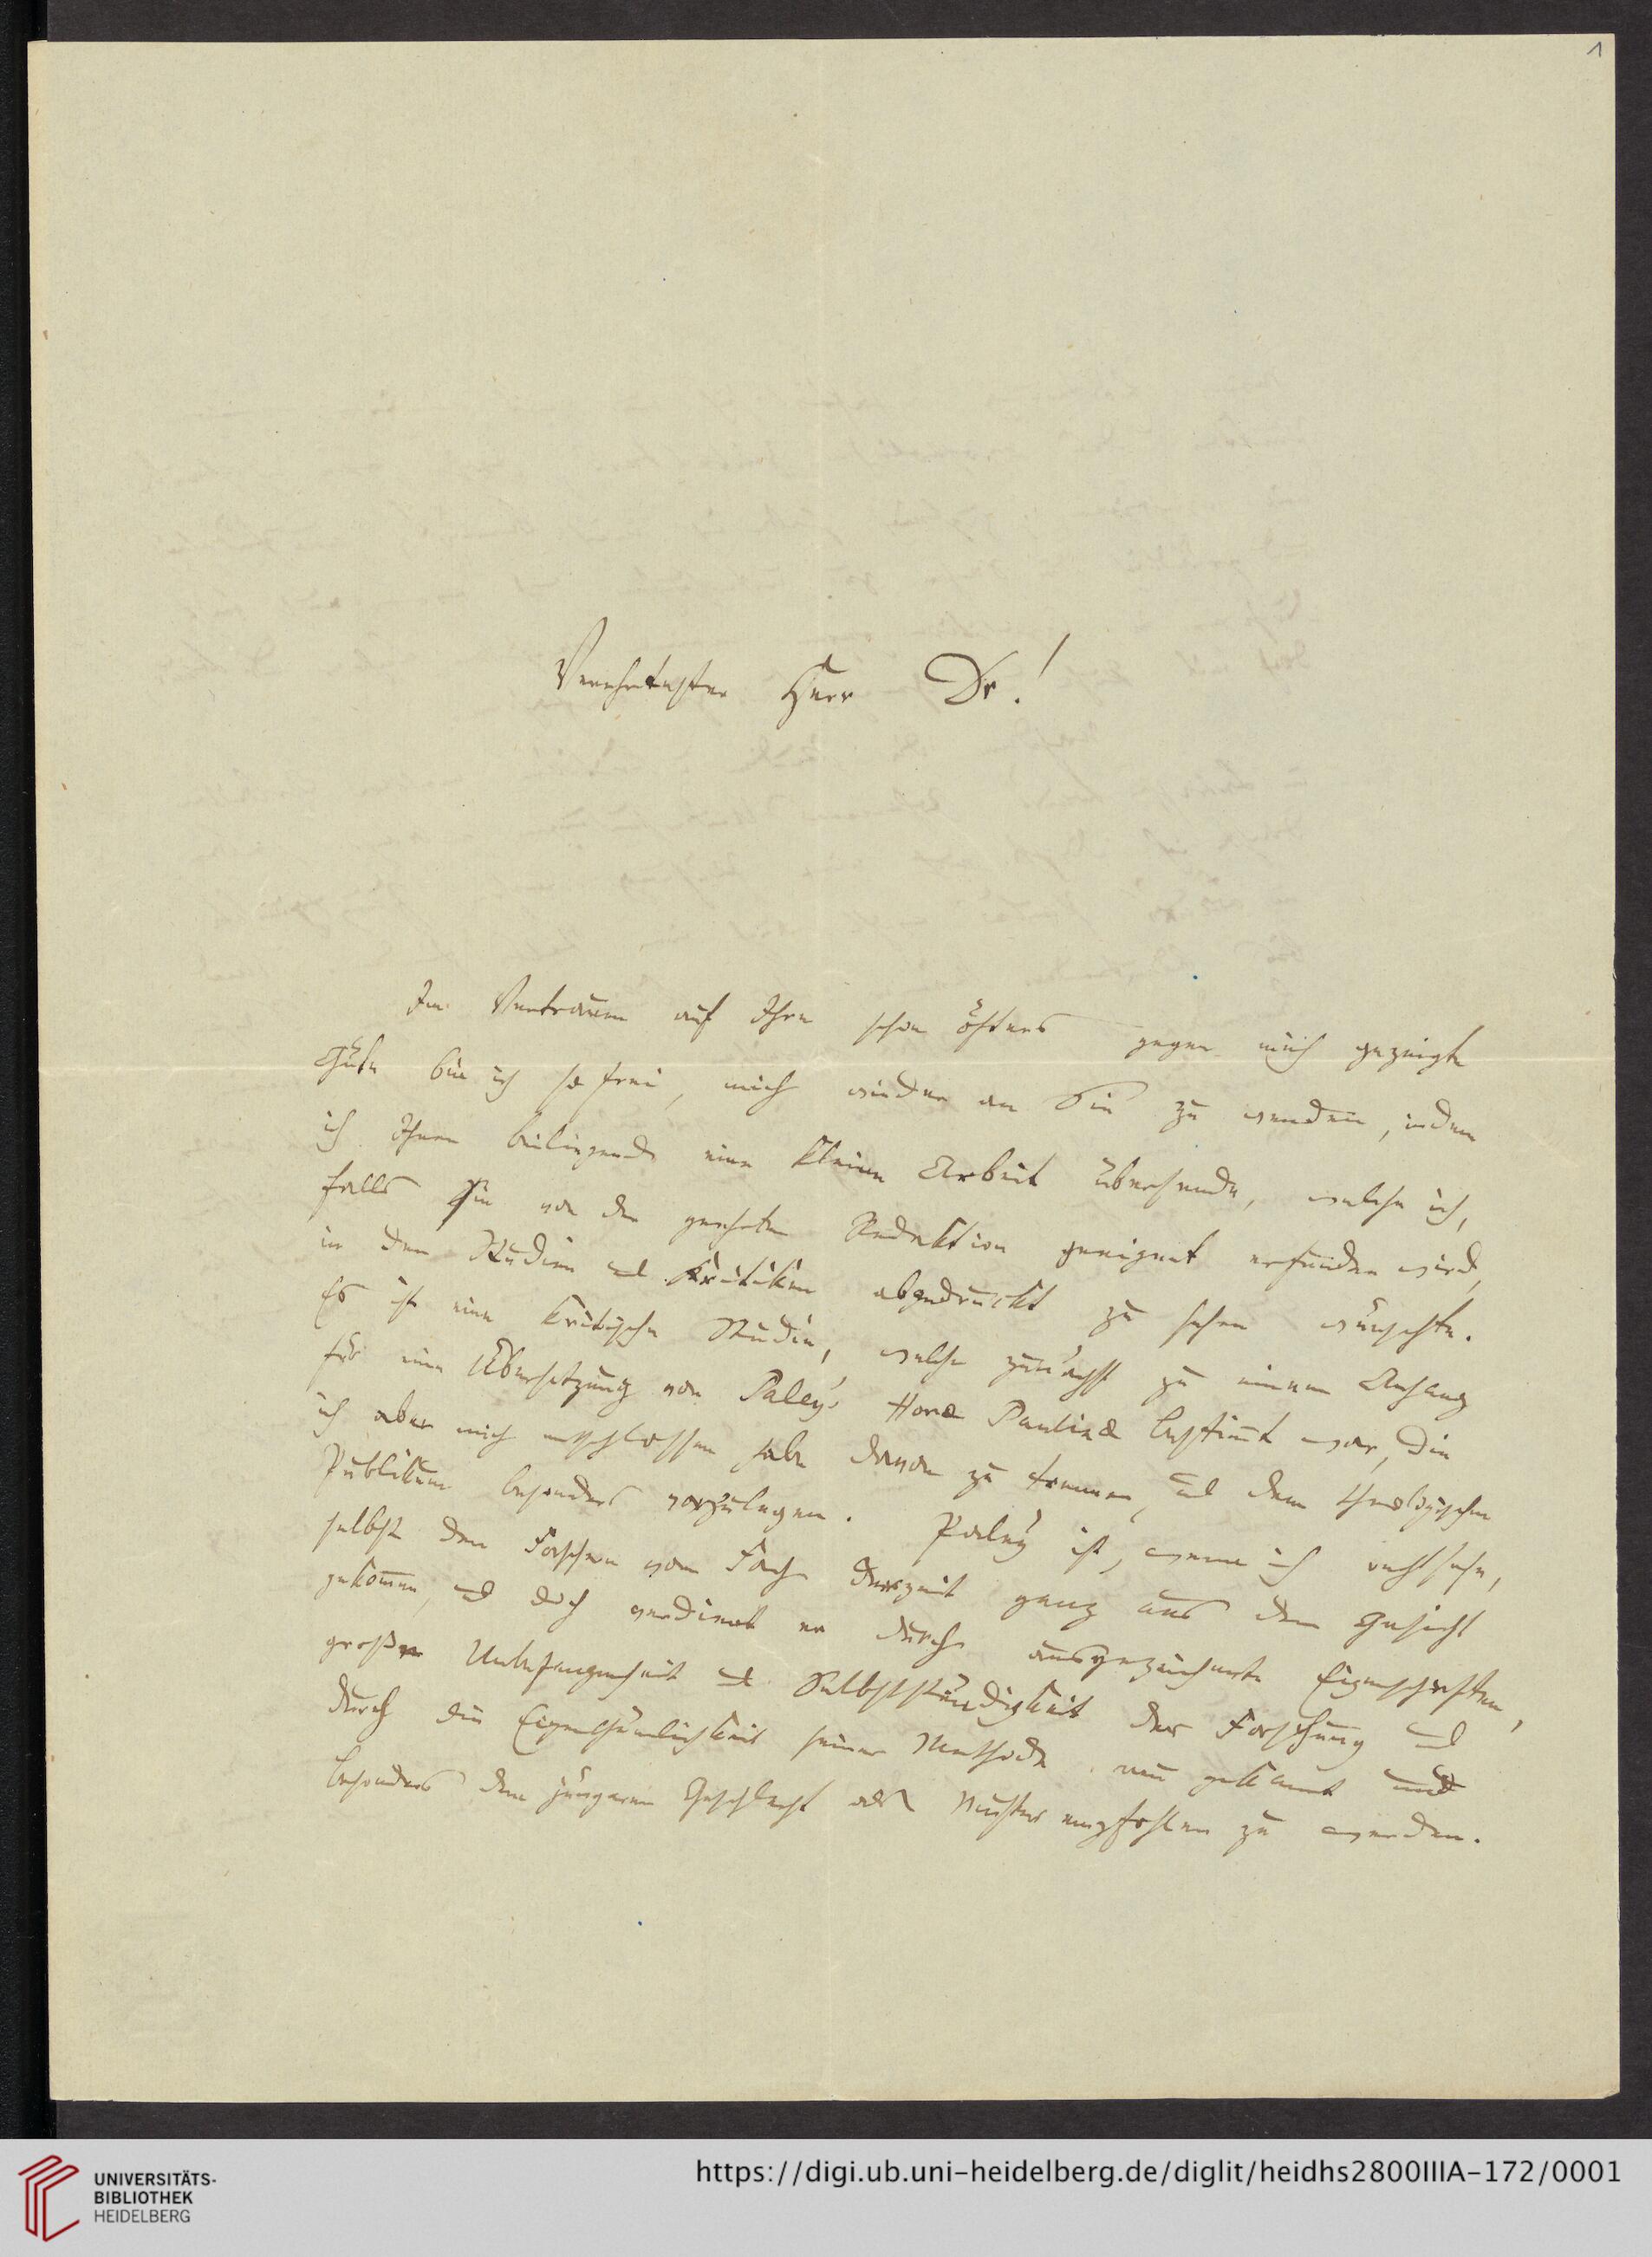 1
Verehrtester Herr Dr.!
Im Vertrauen auf Ihre schon öfters gegen mich gezeigte
Güte bin ich so frei, mich wieder an Sie zu wenden, indem
ich Ihnen beiliegend eine kleine Arbeit übersende, welche ich,
falls sie von der geehrten Redaktion geeignet erfunden wird,
in den Studien und Kritiken abgedruckt zu sehen wünschte.
Es ist eine kritische Studie, welche zunächst zu einem Anhang
für eine Übersetzung von Paley's Horae Paulinae bestimmt war, die
ich aber mich entschlossen habe davon zu trennen, und dem theologischen
Publikum besonders vorzulegen. Paley ist, wenn ich recht sehe,
selbst den Forschern vom Fach derzeit ganz aus dem Gesicht
gekommen, und doch verdient er durch ausgezeichnete Eigenschaften,
große Unbefangenheit und Selbstständigkeit der Forschung und
durch die Eigenthümlichkeit seiner Methode neu gekannt und
besonders dem jüngeren Geschlecht als Muster empfohlen zu werden.
UNIVERSITÄTS-
BIBLIOTHEK
HEIDELBERG
https://digi.ub.uni-heidelberg.de/diglit/heidhs2800IIIA-172/0001